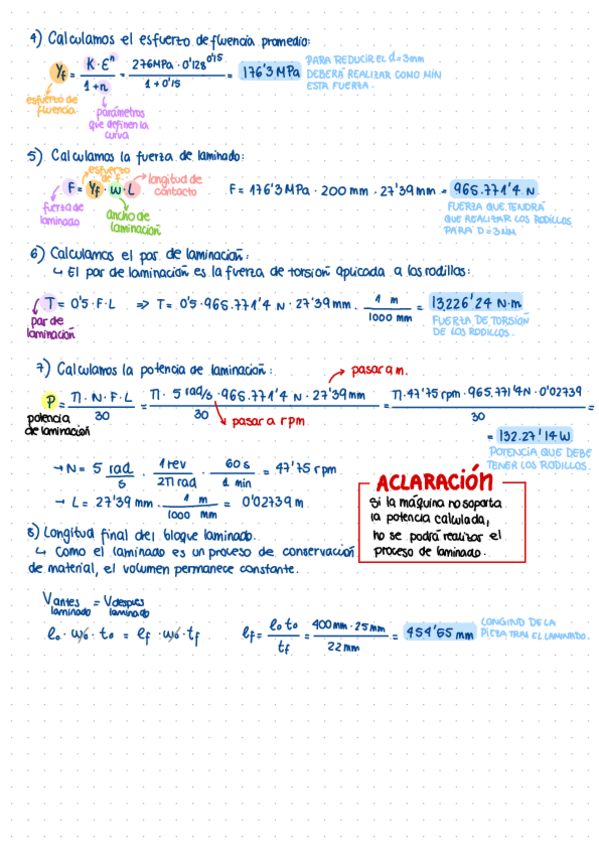 4) Calculamos el esfuerzo de fluencia promedio:
Yf = K·Ɛⁿ / 1+n = 276MPa · 0'128^0'15 / 1+0'15 = 176'3 MPa
PARA REDUCIR EL d=3mm
DEBERÁ REALIZAR COMO MÍN
ESTA FUERZA.
esfuerzo de
fluencia
parámetros
que definen la
curva
5) Calculamos la fuerza de laminado:
esfuerzo
de f.
longitud de
contacto
F = Yf · w · L
F = 176'3 MPa · 200 mm · 27'39 mm = 965.771'4 N
fuerza de
laminado
ancho de
laminación
FUERZA QUE TENDRÁ
QUE REALIZAR LOS RODILLOS
PARA D=3MM
6) Calculamos el par de laminación:
↳ El par de laminación es la fuerza de torsión aplicada a los rodillos:
T = 0'5·F·L ⇒ T = 0'5·965.771'4 N · 27'39 mm · 1 m / 1000 mm = 13.226'24 N·m
par de
laminación
FUERZA DE TORSIÓN
DE LOS RODILLOS.
7) Calculamos la potencia de laminación:
pasar a m.
P = Π · N · F · L / 30 = Π · 5 rad/s · 965.771'4 N · 27'39mm / 30 = Π·47'75 rpm · 965.771'4N · 0'02739 / 30 =
potencia
de laminación
pasar a rpm
= 132.27'14 W
POTENCIA QUE DEBE
TENER LOS RODILLOS.
→ N = 5 rad / s · 1 rev / 2Π rad · 60 s / 1 min = 47'75 rpm
→ L = 27'39 mm · 1 m / 1000 mm = 0'02739 m
ACLARACIÓN
Si la máquina no soporta
la potencia calculada,
no se podrá realizar el
proceso de laminado.
8) Longitud final del bloque laminado.
↳ Como el laminado es un proceso de conservación
de material, el volumen permanece constante.
Vantes laminado = Vdespués laminado
l₀ · w₀ · t₀ = lf · w₀ · tf
lf = l₀ t₀ / tf = 400 mm · 25 mm / 22 mm = 454'55 mm
LONGITUD DE LA
PIEZA TRAS EL LAMINADO.